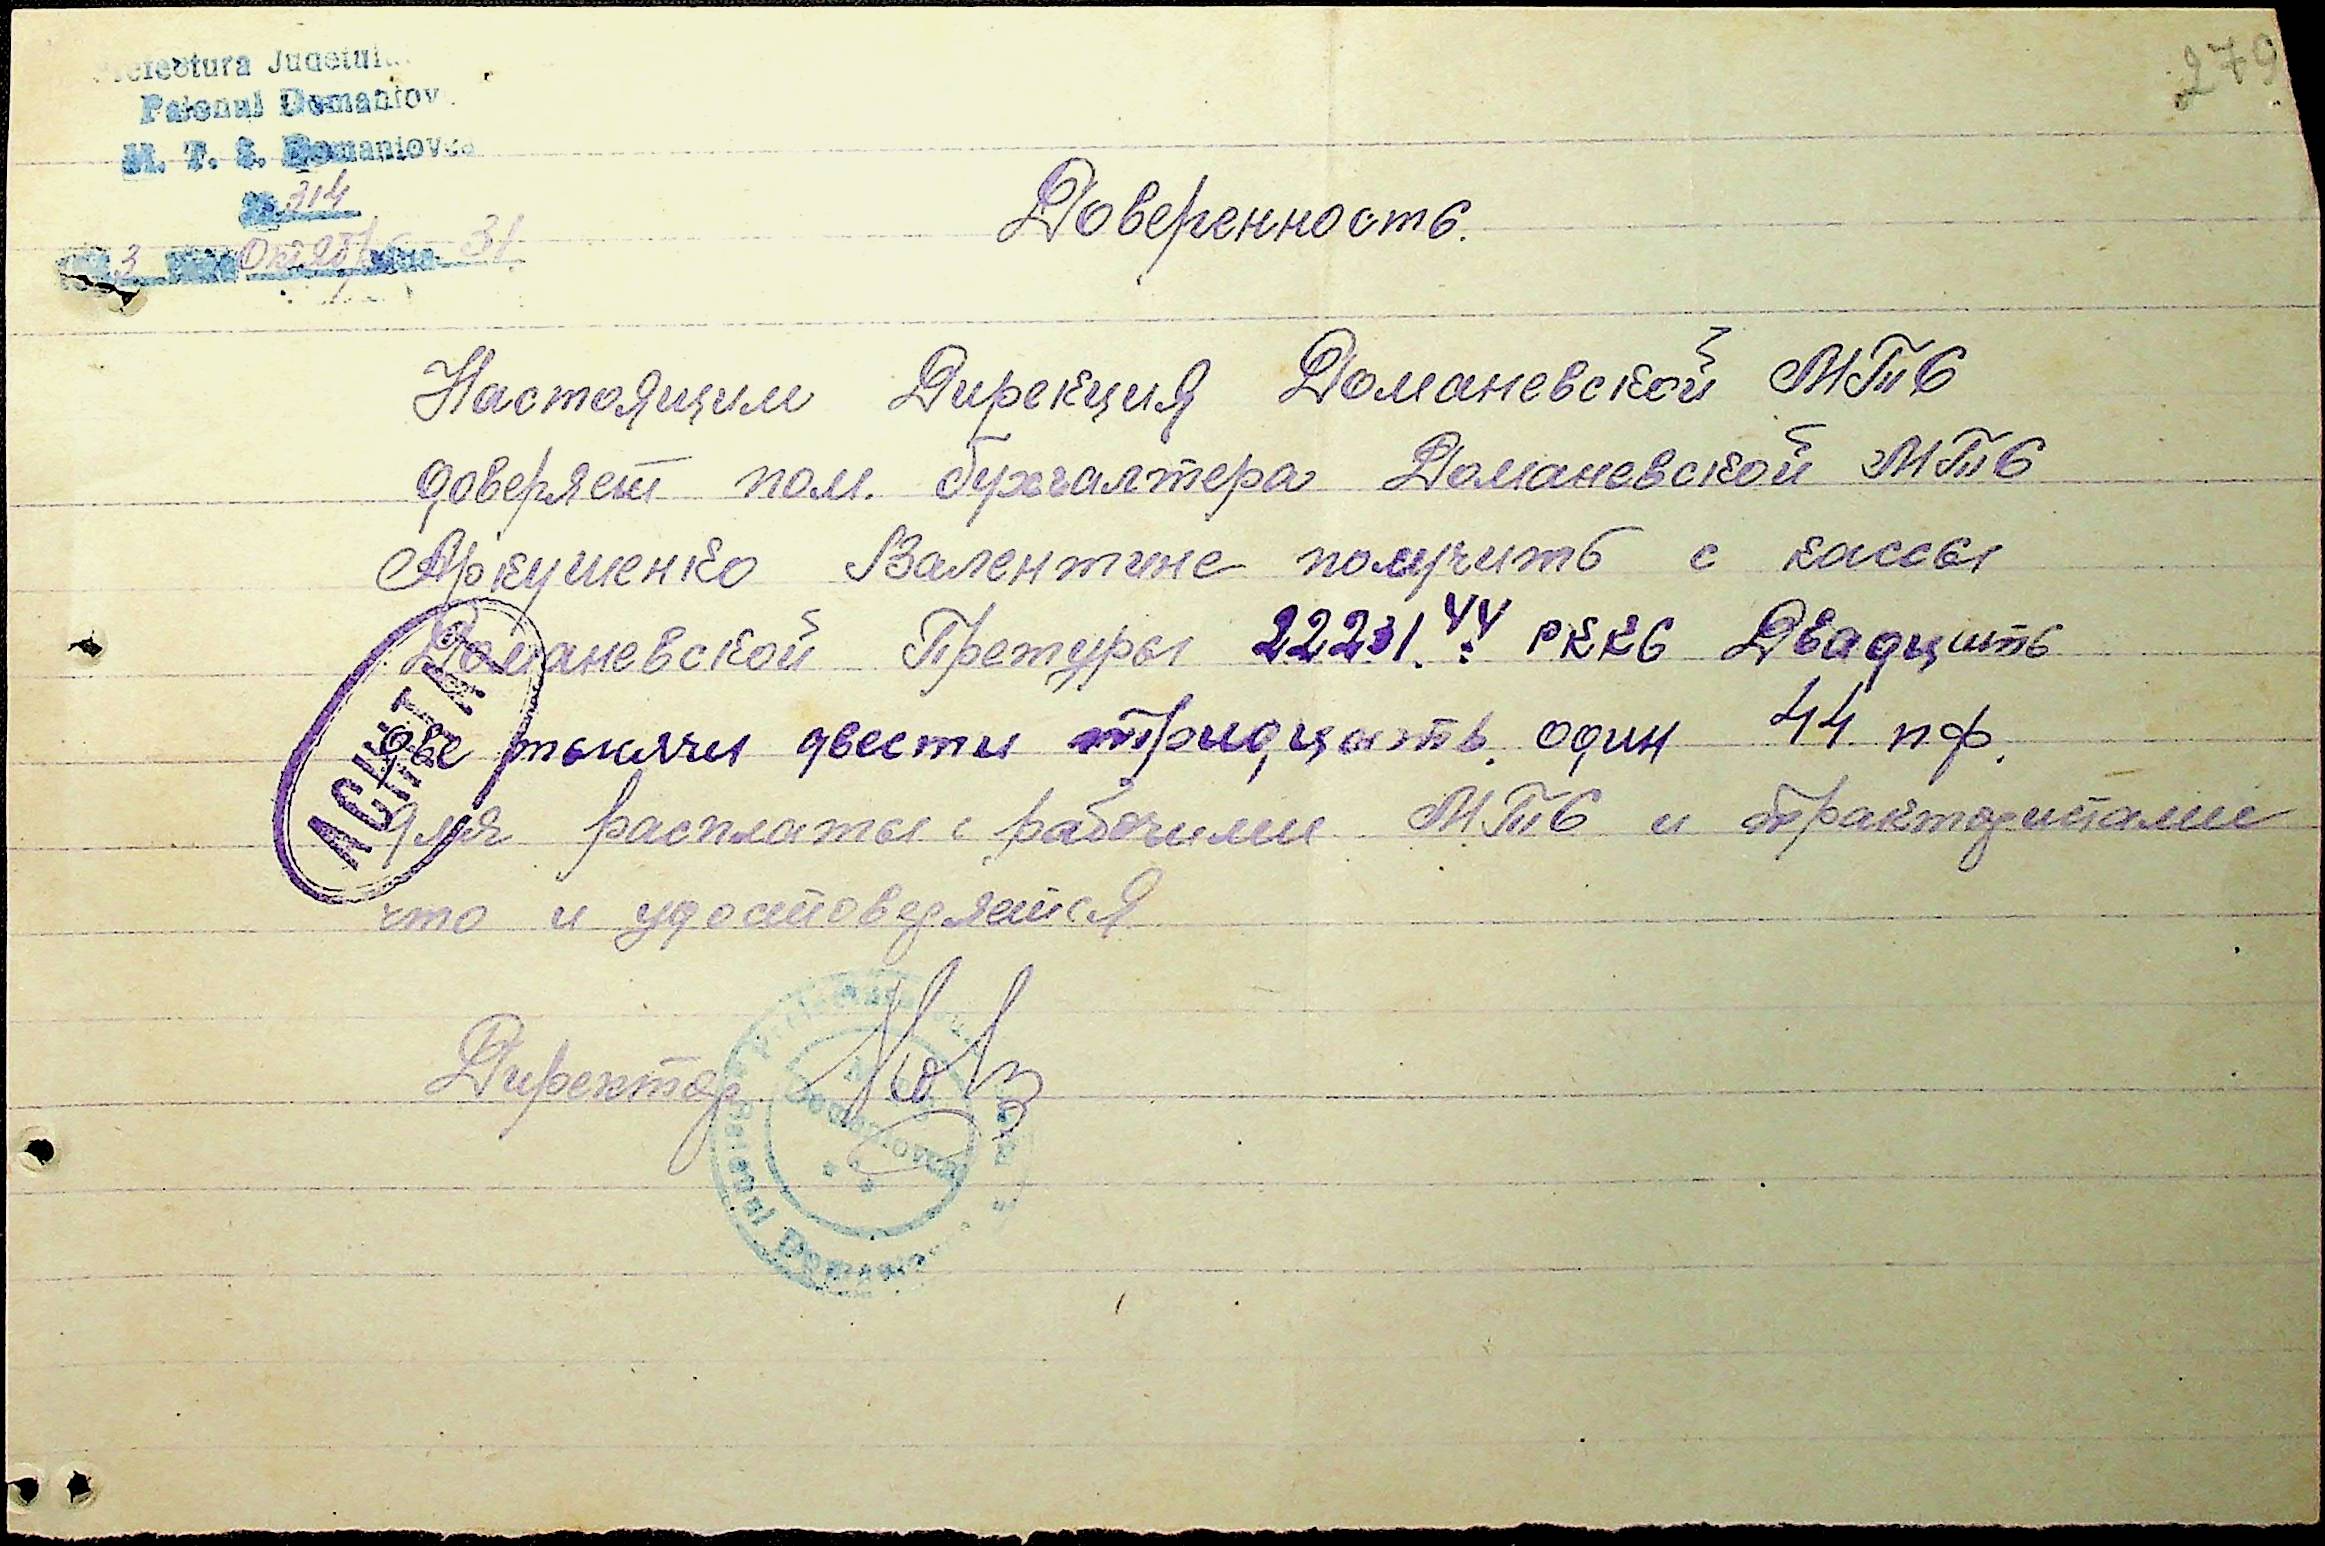 279
Prefectura Judetul
Raionul Domaniov
M. T. S. Domaniovca
№ 314
3 Октября
Доверенность.
Настоящим Дирекция Доманевской МТС
доверяет пом. бухгалтера Доманевской МТС
Аркушенко Валентине получить с кассы
Доманевской Претуры 22231.44 РККС Двадцить
две тысячи двести тридцать. один 44 пф.
для расплаты с рабочими МТС и трактористами
что и удостоверяется
Директор
ACHITAT
Raionul Domaniov
Domaniovca